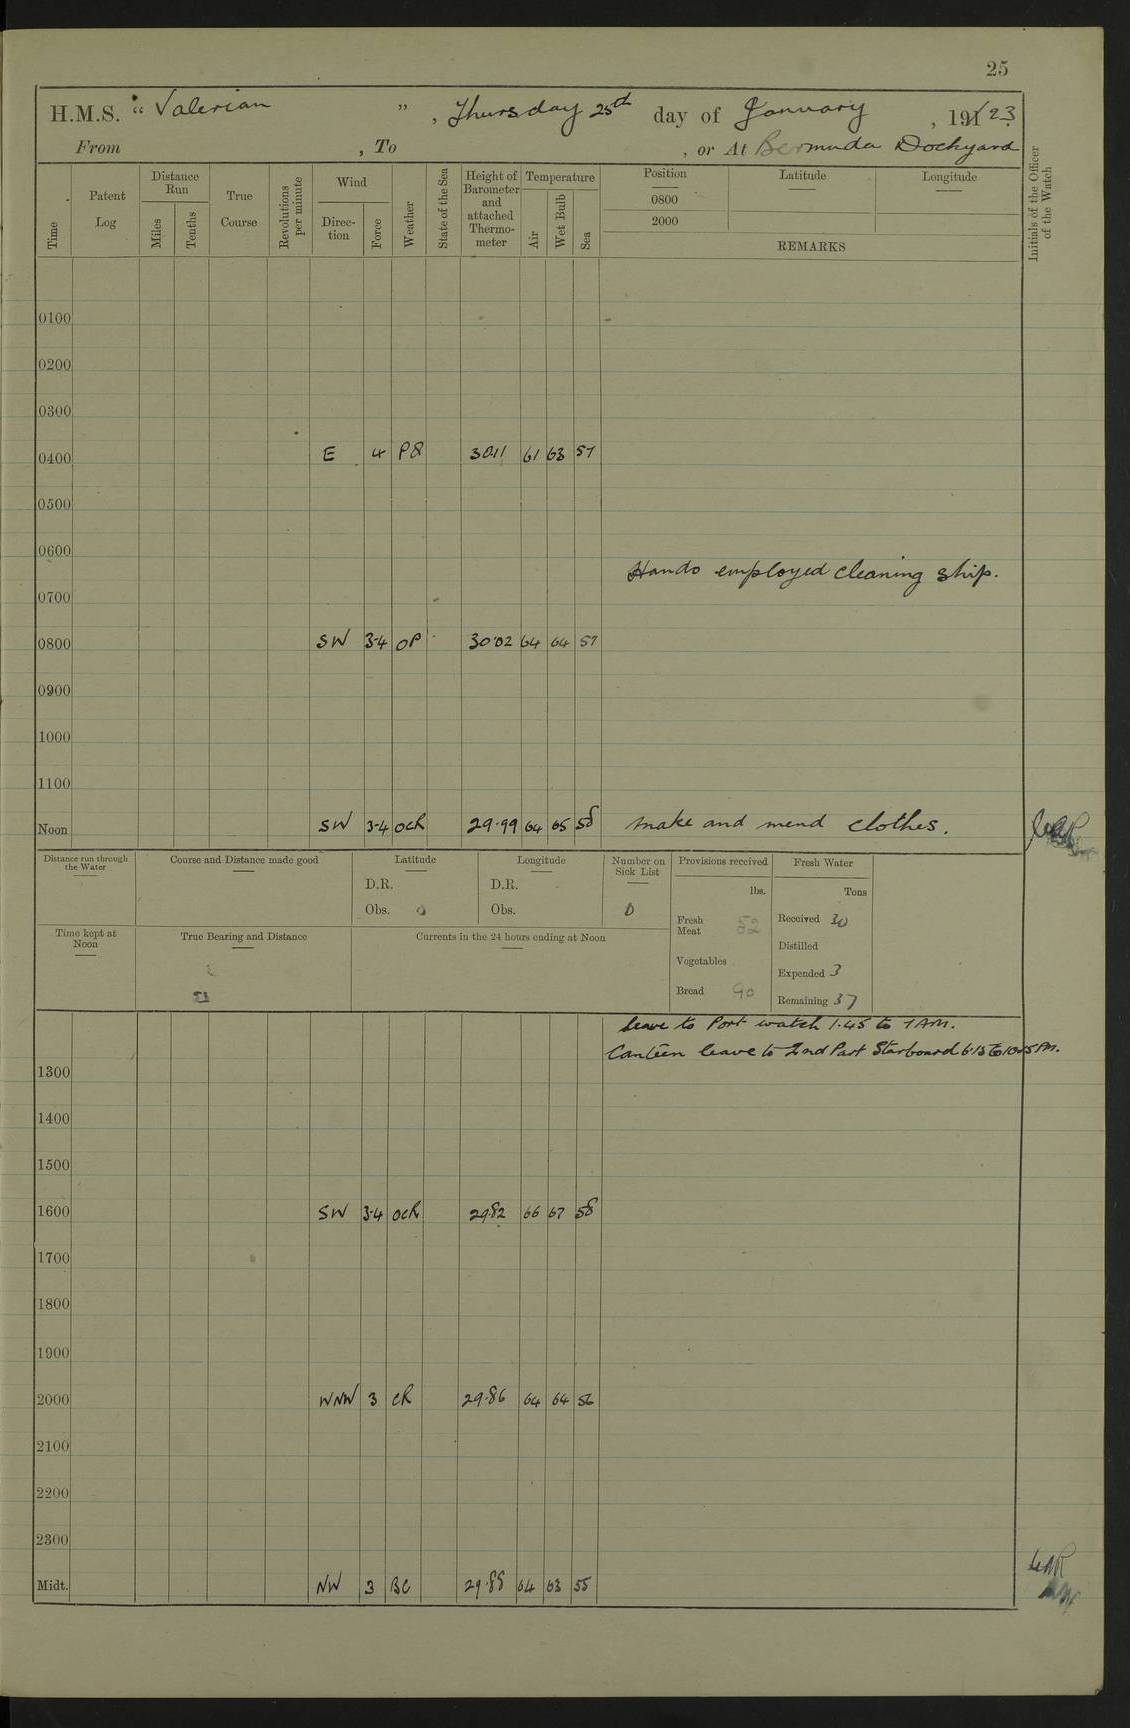 25
H.M.S. "Valerian", Thursday 25th day of January, 191/23
From , To , or At Bermuda Dockyard
Time
Patent Log
Distance Run
Miles
Tenths
True Course
Revolutions per minute
Wind
Direction
Force
Weather
State of the Sea
Height of Barometer and attached Thermometer
Temperature
Air
Wet Bulb
Sea
Position
Latitude
Longitude
0800
2000
REMARKS
Initials of the Officer of the Watch
0100
0200
0300
0400 E 4 30.11 61 63 57
0500
0600
Hands employed cleaning ship.
0700
0800 SW 3-4 OP 30.02 64 64 57
0900
1000
1100
Noon SW 3-4 OCR 29.99 64 65 58 Make and mend clothes.
Distance run through the Water
Course and Distance made good
Latitude
D.R.
Obs. 0
Longitude
D.R.
Obs.
Number on Sick List
0
Provisions received
lbs.
Fresh Meat 52
Vegetables
Bread 90
Fresh Water
Tons
Received 30
Distilled
Expended 3
Remaining 37
Time kept at Noon
True Bearing and Distance
Currents in the 24 hours ending at Noon
Leave to Port watch 1.45 to 7 AM.
Canteen leave to 2nd Part Starboard 6.15 to PM.
1300
1400
1500
1600 SW 3-4 OCR 29.82 66 67 58
1700
1800
1900
2000 WNW 3 CR 29.86 64 64 56
2100
2200
2300
Midt. NW 3 BC 29.88 64 63 55